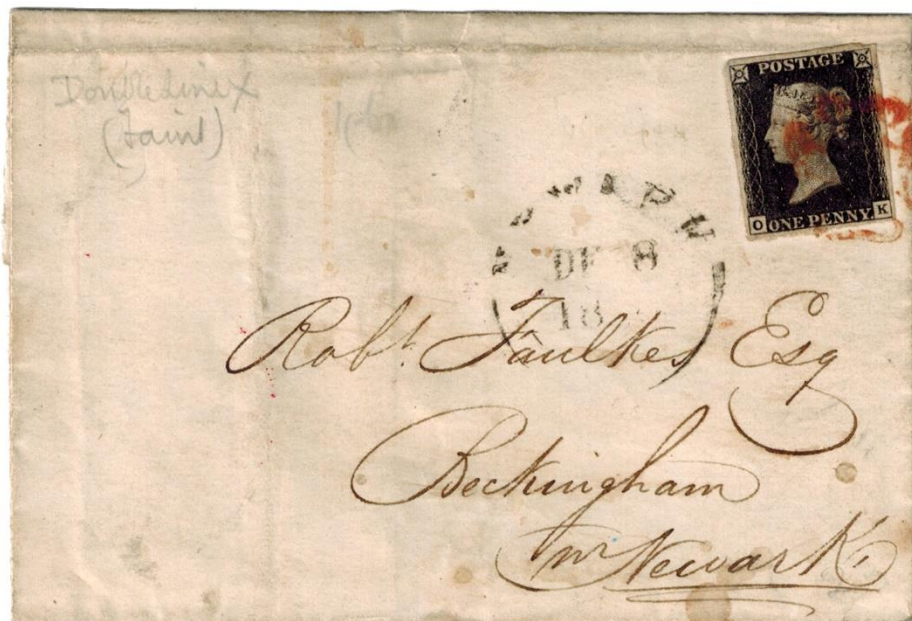 Double Line X
(faint)
POSTAGE
O ONE PENNY K
DE 8
18
Robt. Faulkes Esq
Beckingham
nr Newark